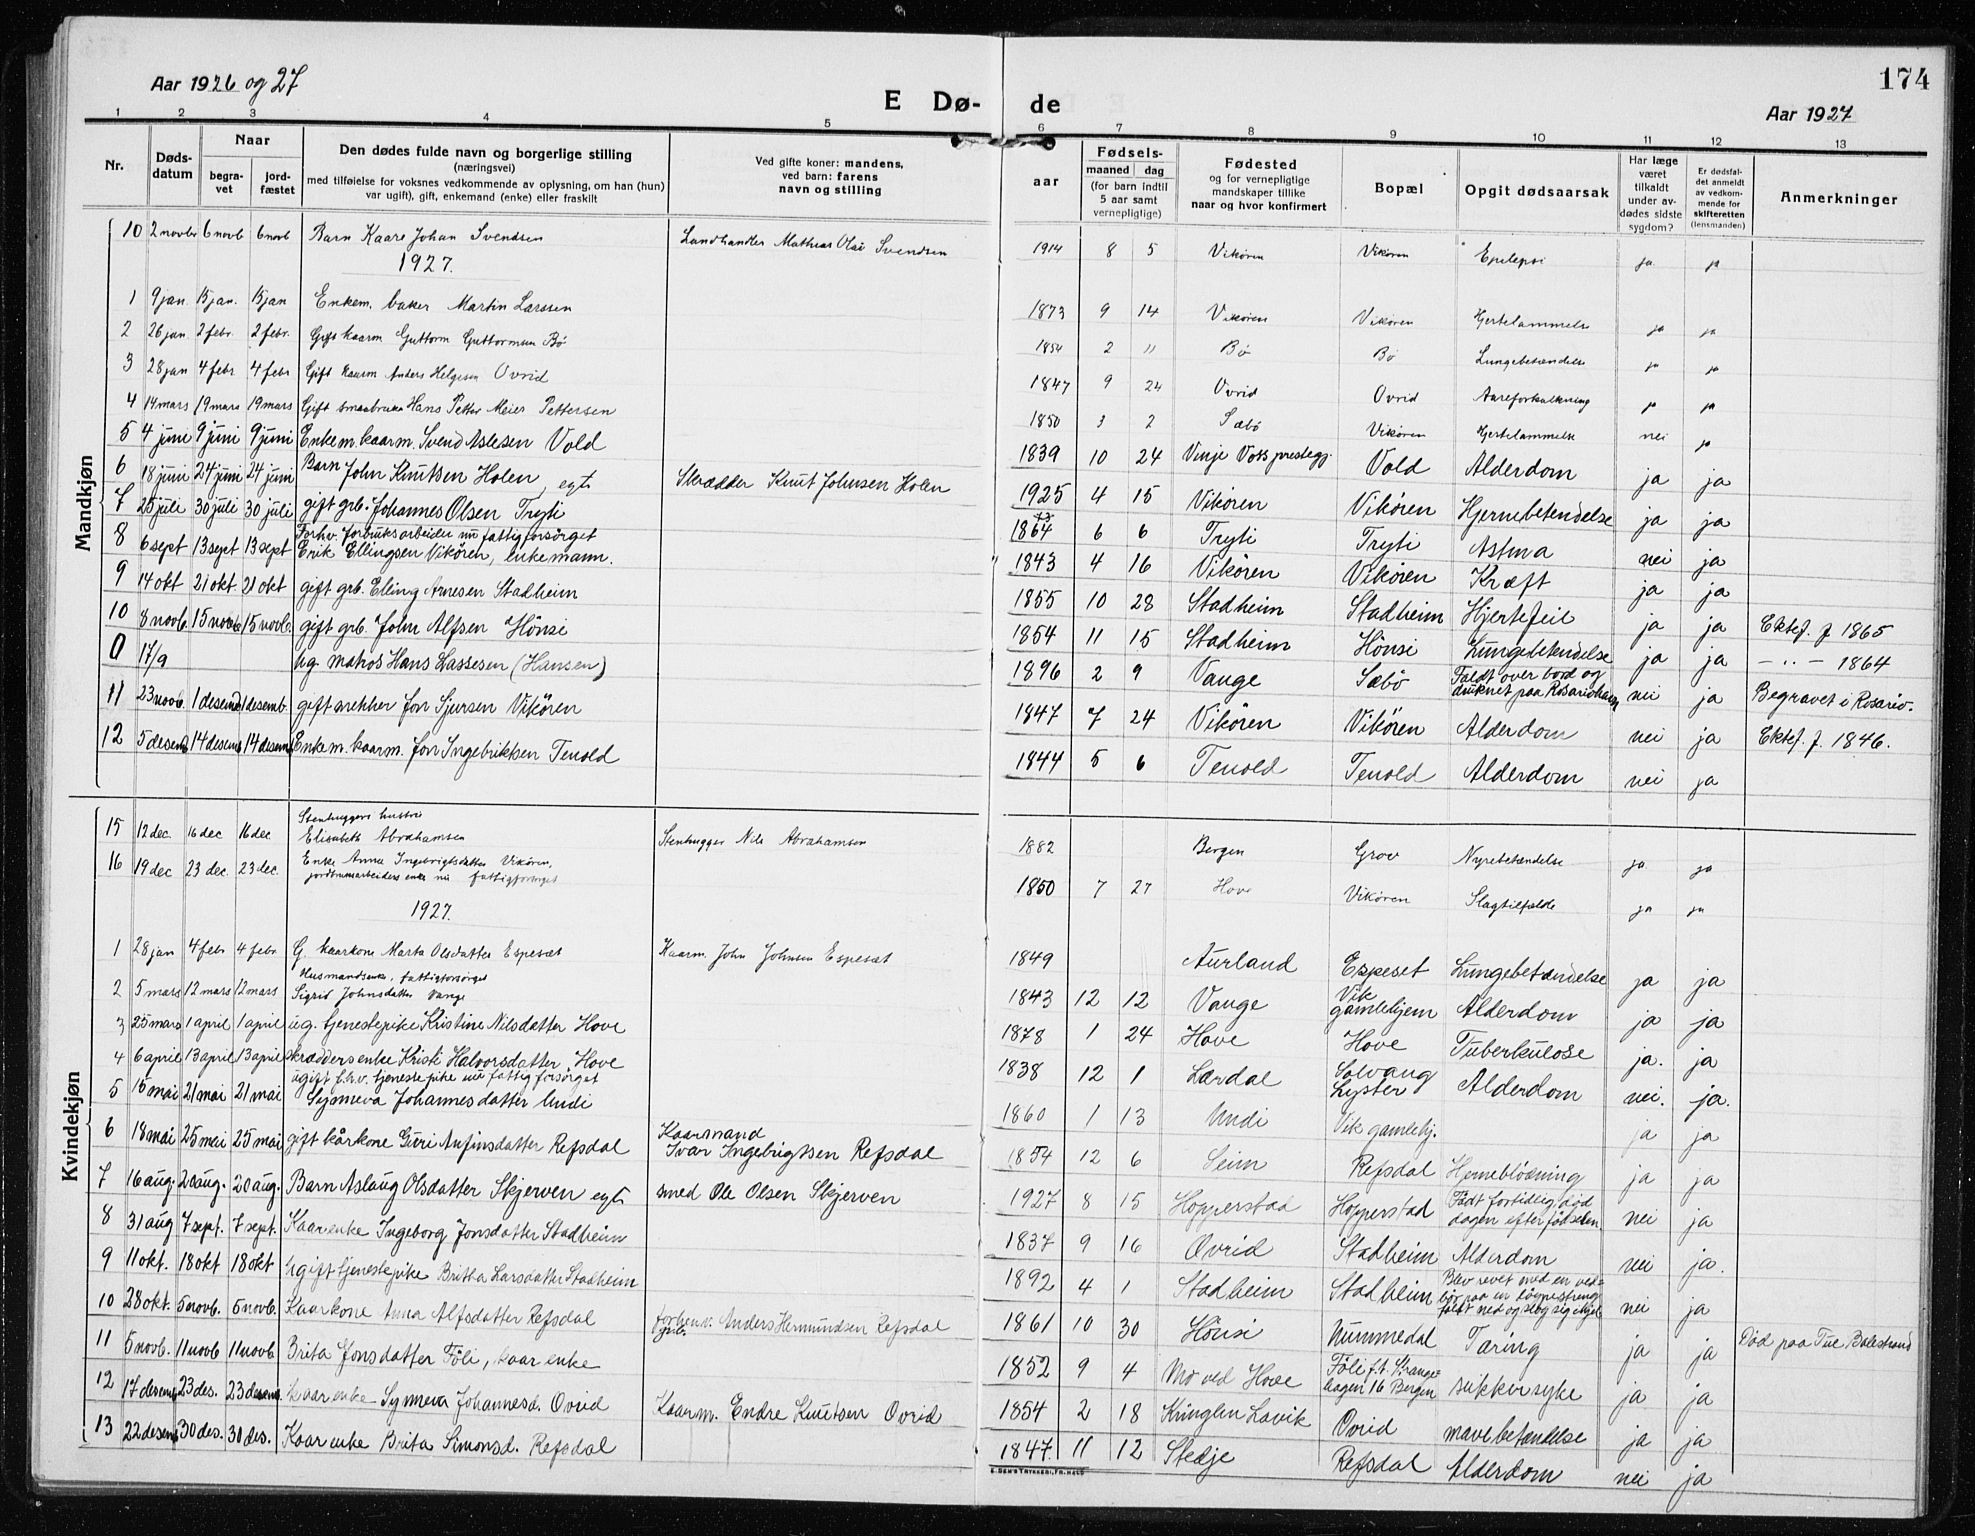 174
Aar 1926 og 27
E Dø- de
Aar 1927
1 2 3 4 5 6 7 8 9 10 11 12 13
Nr.
Døds-
datum
Naar
begra-
vet
jord-
fæstet
Den dødes fulde navn og borgerlige stilling
(næringsvei)
med tilføielse for voksnes vedkommende av oplysning, om han (hun)
var ugift), gift, enkemand (enke) eller fraskilt
Ved gifte koner: mandens,
ved barn: farens
navn og stilling
Fødsels-
aar
maaned dag
(for barn indtil
5 aar samt
vernepligtige)
Fødested
og for vernepligtige
mandskaper tillike
naar og hvor konfirmert
Bopæl
Opgit dødsaarsak
Har læge
været
tilkaldt
under av-
dødes sidste
sygdom?
Er dødsfal-
det anmeldt
av vedkom-
mende for
skifteretten
(lensmanden)
Anmerkninger
Mandkjøn
10 2 novbr 6 novb 6 novb Barn Kaare Johan Svendsen Landhandler Mathias Olai Svendsen 1914 8 5 Vikøren Vikøren Epilepsi ja ja
1927.
1 9 jan. 15 jan. 15 jan Enkem. baker Martin Larssen 1873 9 14 Vikøren Vikøren Hjertelammelse ja ja
2 26 jan 2 febr. 2 febr. Gift kaarm Guttorm Guttormsen Bø 1854 2 11 Bø Bø Lungebetændelse ja ja
3 28 jan 4 febr 4 febr Gift kaarm Anders Helgesen Ovrid 1847 9 24 Ovrid Ovrid Aareforkalkning ja ja
4 14 mars 19 mars 19 mars Gift smaabruker Hans Petter Meier Pettersen 1850 3 2 Sæbø Vikøren Hjertelammelse nei ja
5 4 juni 9 juni 9 juni Enkem. kaarm. Svend Aslesen Vold 1839 10 24 Vinje Voss prestegj. Vold Alderdom ja ja
6 18 juni 24 juni 24 juni Barn John Knutsen Holen, egt Skrædder Knut Johnsen Holen 1925 4 15 Vikøren Vikøren Hjernebetendelse ja ja
7 25 juli 30 juli 30 juli gift grb. Johannes Olsen Tryti 1864 6 6 Tryti Tryti Astma nei ja
8 6 sept 13 sept 13 sept Forhv. forbuksarbeider nu fattigforsörget
Erik Ellingsen Vikøren, enkemann. 1843 4 16 Vikören Vikören Kræft ja ja
9 14 okt 21 okt 21 okt gift grb. Elling Arnesen Stadheim 1855 10 28 Stadheim Stadheim Hjertefeil ja ja Ektef. f. 1865
10 8 novb. 15 novb. 15 novb. gift grb. John Alfsen Hönsi 1854 11 15 Stadheim Hönsi Lungebetendelse ja ja -..- 1864
0 17/9 Ug. matros Hans Lassesen (Hansen) 1896 2 9 Vange Sæbö Faldt over bord og
druknet paa Rosariohavn nei ja Begravet i Rosario.
11 23 novb. 1 desemb 1 desemb. gift snekker Jon Sjursen Vikören 1847 7 24 Vikören Vikören Alderdom nei ja Ektef. f. 1846.
12 5 desemb 14 desemb 14 desemb Enkem. kaarm. Jon Ingebrikksen Tenold 1844 5 6 Tenold Tenold Alderdom nei ja
Kvindekjøn
15 12 dec. 16 dec 16 dec Stenhuggers hustru
Elisabeth Abrahamsen Stenhugger Nils Abrahamsen 1882 Bergen Grov Nyrebetændelse ja ja
16 19 dec 23 dec. 23 dec. Enke Anna Ingebrigtsdatter Vikören,
jordbruksarbeiders enke nu fattigforsörget 1850 7 27 Hove Vikøren Slagtilfælde ja ja
1927.
1 28 jan 4 febr 4 febr. G. kaarkone Marta Olsdatter Espeset Kaarm. John Johnsen Espeset 1849 Aurland Espeset Lungebetændelse ja ja
2 5 mars 12 mars 12 mars Husmandsenke, fattigforsörget
Sigrid Johnsdatter Vange 1843 12 12 Vange Vik
gamlehjem Alderdom ja ja
3 25 mars 1 april 1 april ug. tjenestepike Kristine Nilsdatter Hove 1878 1 24 Hove Hove Tuberkulose ja. ja
4 6 april 13 april 13 april skræddersenke Kristi Halvorsdatter Hove 1838 12 1 Lærdal Solvang
Lyster Alderdom nei. ja.
5 15 mai 21 mai 21 mai ugift f.h.v. tjenestepike nu fattigforsörget
Synneva Johannesdatter Undi 1860 1 13 Undi Vik gamlehj. ja ja
6 18 mai 25 mai 25 mai gift kårkone Guri Anfinsdatter Refsdal Kaarmand
Ivar Ingebrigtsen Refsdal 1854 12 6 Seim Refsdal Hjerneblödning ja ja
7 16 aug. 20 aug. 20 aug. Barn Aslaug Olsdatter Skjerven egte smed Ole Olsen Skjerven 1927 8 15 Hopperstad Hopperstad Födt fortidlig, död
dagen efter födselen. nei ja
8 31 aug 7 sept. 7 sept. Kaarenke Ingeborg Jonsdatter Stadheim 1837 9 16 Ovrid Stadheim Alderdom nei ja.
9 11 okt. 18 okt 18 okt Ugift tjenestepike Britha Larsdatter Stadheim 1892 4 1 Stadheim Stadheim Blev revet med en ved-
bör paa en löypestreng
faldt ned og slog sig ihjel nei ja
10 28 okt. 5 novb. 5 novb. Kaarkone Anna Alfsdatter Refsdal forhenv. grb. Anders Hermundsen Refsdal 1861 10 30 Hönsi Nummedal Tæring ja ja Död paa Tue Balestrand
11 5 novb. 11 novb 11 novb Brita Jonsdatter Föli, kaarenke 1852 9 4 Mo ved Hove Föli f.t. Strange-
hagen 16 Bergen sukkersyke ja ja
12 17 desemb 23 des. 23 desemb. kaarenke Synneva Johannesd. Ovrid Kaarm. Endre Knutsen Ovrid 1854 2 18 Kringlen Lavik Ovrid mavebetændelse ja ja
13 22 desemb 30 des. 30 des. Kaarenke Brita Simonsd. Refsdal 1847. 11 12 Stedje Refsdal Alderdom nei ja